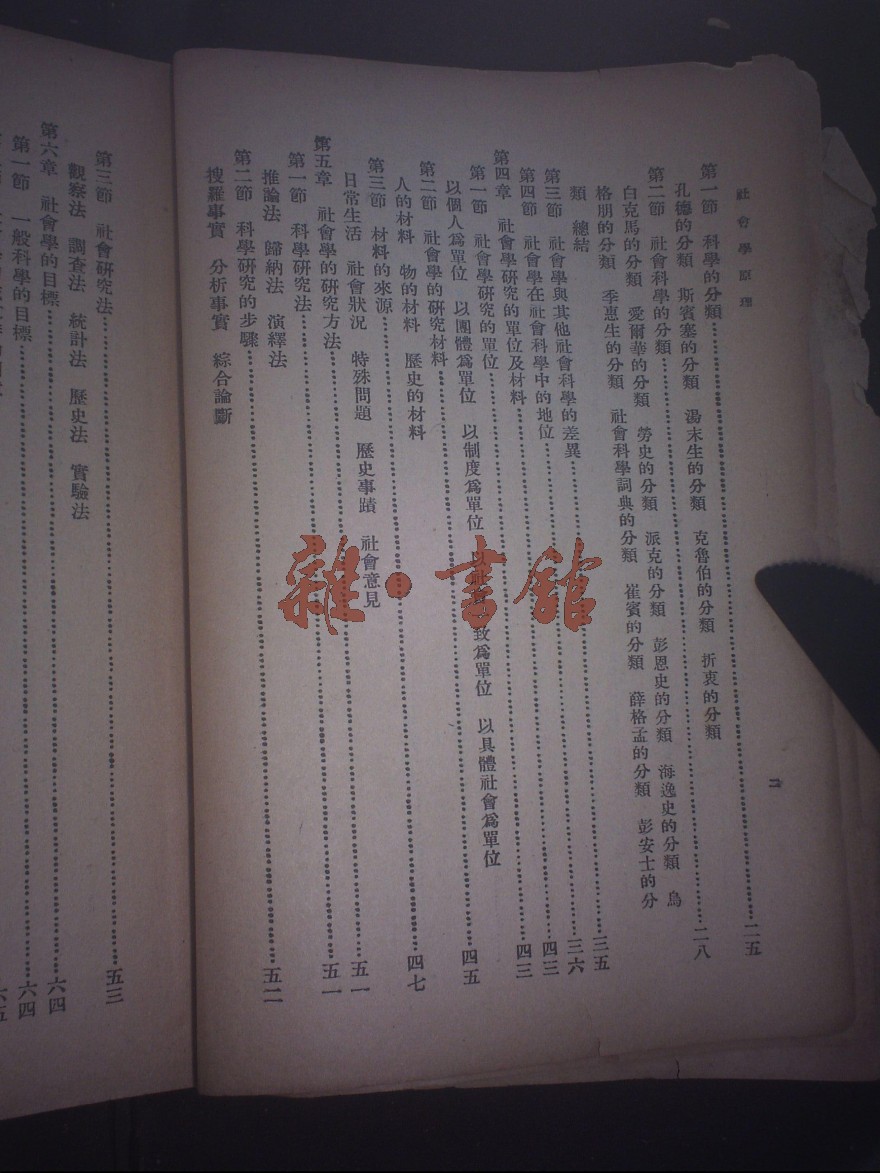 社會學原理
二
第一節 科學的分類……二五
孔德的分類 斯賓塞的分類 湯末生的分類 克魯伯的分類 折衷的分類
第二節 社會科學的分類……二八
白克馬的分類 愛爾華的分類 勞史的分類 派克的分類 彭恩史的分類 海逸史的分類 烏
格朋的分類 季惠生的分類 社會科學詞典的分類 崔賓的分類 薛格孟的分類 彭安士的分
類 總結
第三節 社會學與其他社會科學的差異……三五
第四節 社會學在社會科學中的地位……三六
第四章 社會學研究的單位及材料……四三
第一節 社會學研究的單位……四三
以個人爲單位 以團體爲單位 以制度爲單位 以社會一致爲單位 以具體社會爲單位
第二節 社會學的研究材料……四五
人的材料 物的材料 歷史的材料
第三節 材料的來源……四七
日常生活 社會狀況 特殊問題 歷史事蹟 社會意見
第五章 社會學的研究方法……五一
第一節 科學研究法……五一
推論法 歸納法 演繹法
第二節 科學研究的步驟……五二
搜羅事實 分析事實 綜合論斷
第三節 社會研究法……五三
觀察法 調查法 統計法 歷史法 實驗法
第六章 社會學的目標……六四
第一節 一般科學的目標……六四
六五
雜·書館